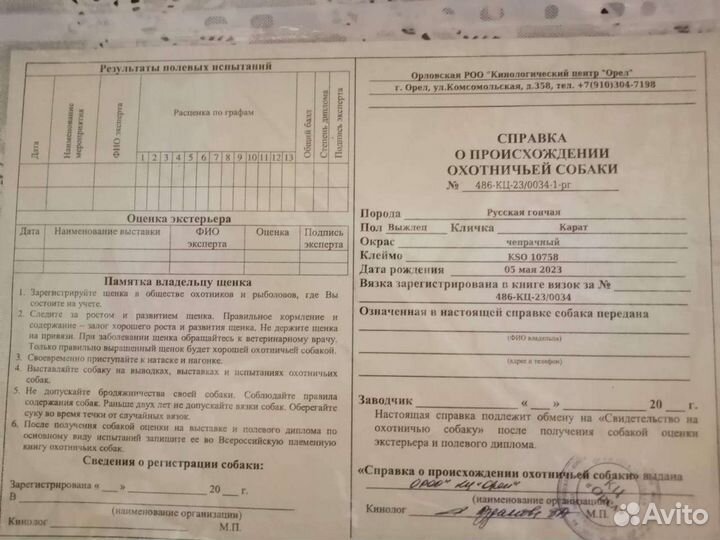 Результаты полевых испытаний
Дата
Наименование мероприятия
ФИО эксперта
Расценка по графам
1 2 3 4 5 6 7 8 9 10 11 12 13
Общий балл
Степень диплома
Подпись эксперта
Оценка экстерьера
Дата Наименование выставки ФИО эксперта Оценка Подпись эксперта
Памятка владельцу щенка
1. Зарегистрируйте щенка в обществе охотников и рыболовов, где Вы
состоите на учете.
2. Следите за ростом и развитием щенка. Правильное кормление и
содержание – залог хорошего роста и развития щенка. Не держите щенка
на привязи. При заболевании щенка обращайтесь к ветеринарному врачу.
Только правильно выращенный щенок будет хорошей охотничьей собакой.
3. Своевременно приступайте к натаске и нагонке.
4. Выставляйте собаку на выводках, выставках и испытаниях охотничьих
собак.
5. Не допускайте бродяжничества своей собаки. Соблюдайте правила
содержания собак. Раньше двух лет не допускайте вязки собак. Оберегайте
суку во время течки от случайных вязок.
6. После получения собакой оценки на выставке и полевого диплома по
основному виду испытаний запишите ее во Всероссийскую племенную
книгу охотничьих собак.
Сведения о регистрации собаки:
Зарегистрирована «___» ________ 20 ___ г.
В
(наименование организации)
Кинолог М.П.
Орловская РОО "Кинологический центр "Орел"
г. Орел, ул.Комсомольская, д.358, тел. +7(910)304-7198
СПРАВКА
О ПРОИСХОЖДЕНИИ
ОХОТНИЧЬЕЙ СОБАКИ
№ 486-КЦ-23/0034-1-рг
Порода Русская гончая
Пол Выжлец Кличка Карат
Окрас чепрачный
Клеймо KSO 10758
Дата рождения 05 мая 2023
Вязка зарегистрирована в книге вязок за №
486-КЦ-23/0034
Означенная в настоящей справке собака передана
(ФИО владельца)
(адрес и телефон)
Заводчик «___» ________ 20 ___ г.
Настоящая справка подлежит обмену на «Свидетельство на
охотничью собаку» после получения собакой оценки
экстерьера и полевого диплома.
«Справка о происхождении охотничьей собаки» выдана
КЦ "Орел"
(наименование организации)
Кинолог М.П.
КЦ
Avito